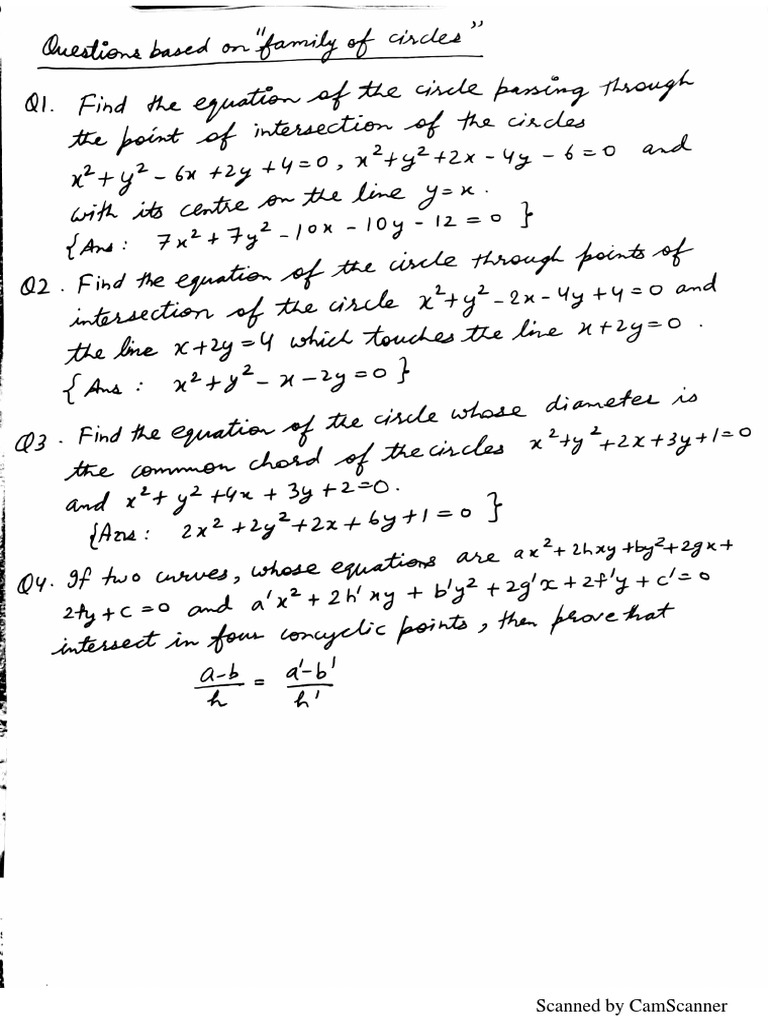 Questions based on "family of circles"
Q1. Find the equation of the circle passing through
the point of intersection of the circles
x² + y² - 6x + 2y + 4 = 0, x² + y² + 2x - 4y - 6 = 0 and
with its centre on the line y = x.
{Ans: 7x² + 7y² - 10x - 10y - 12 = 0}
Q2. Find the equation of the circle through points of
intersection of the circle x² + y² - 2x - 4y + 4 = 0 and
the line x + 2y = 4 which touches the line x + 2y = 0.
{Ans: x² + y² - x - 2y = 0}
Q3. Find the equation of the circle whose diameter is
the common chord of the circles x² + y² + 2x + 3y + 1 = 0
and x² + y² + 4x + 3y + 2 = 0.
{Ans: 2x² + 2y² + 2x + 6y + 1 = 0}
Q4. If two curves, whose equations are ax² + 2hxy + by² + 2gx +
2fy + c = 0 and a'x² + 2h'xy + b'y² + 2g'x + 2f'y + c' = 0
intersect in four concyclic points, then prove that
a-b/h = a'-b'/h'
Scanned by CamScanner